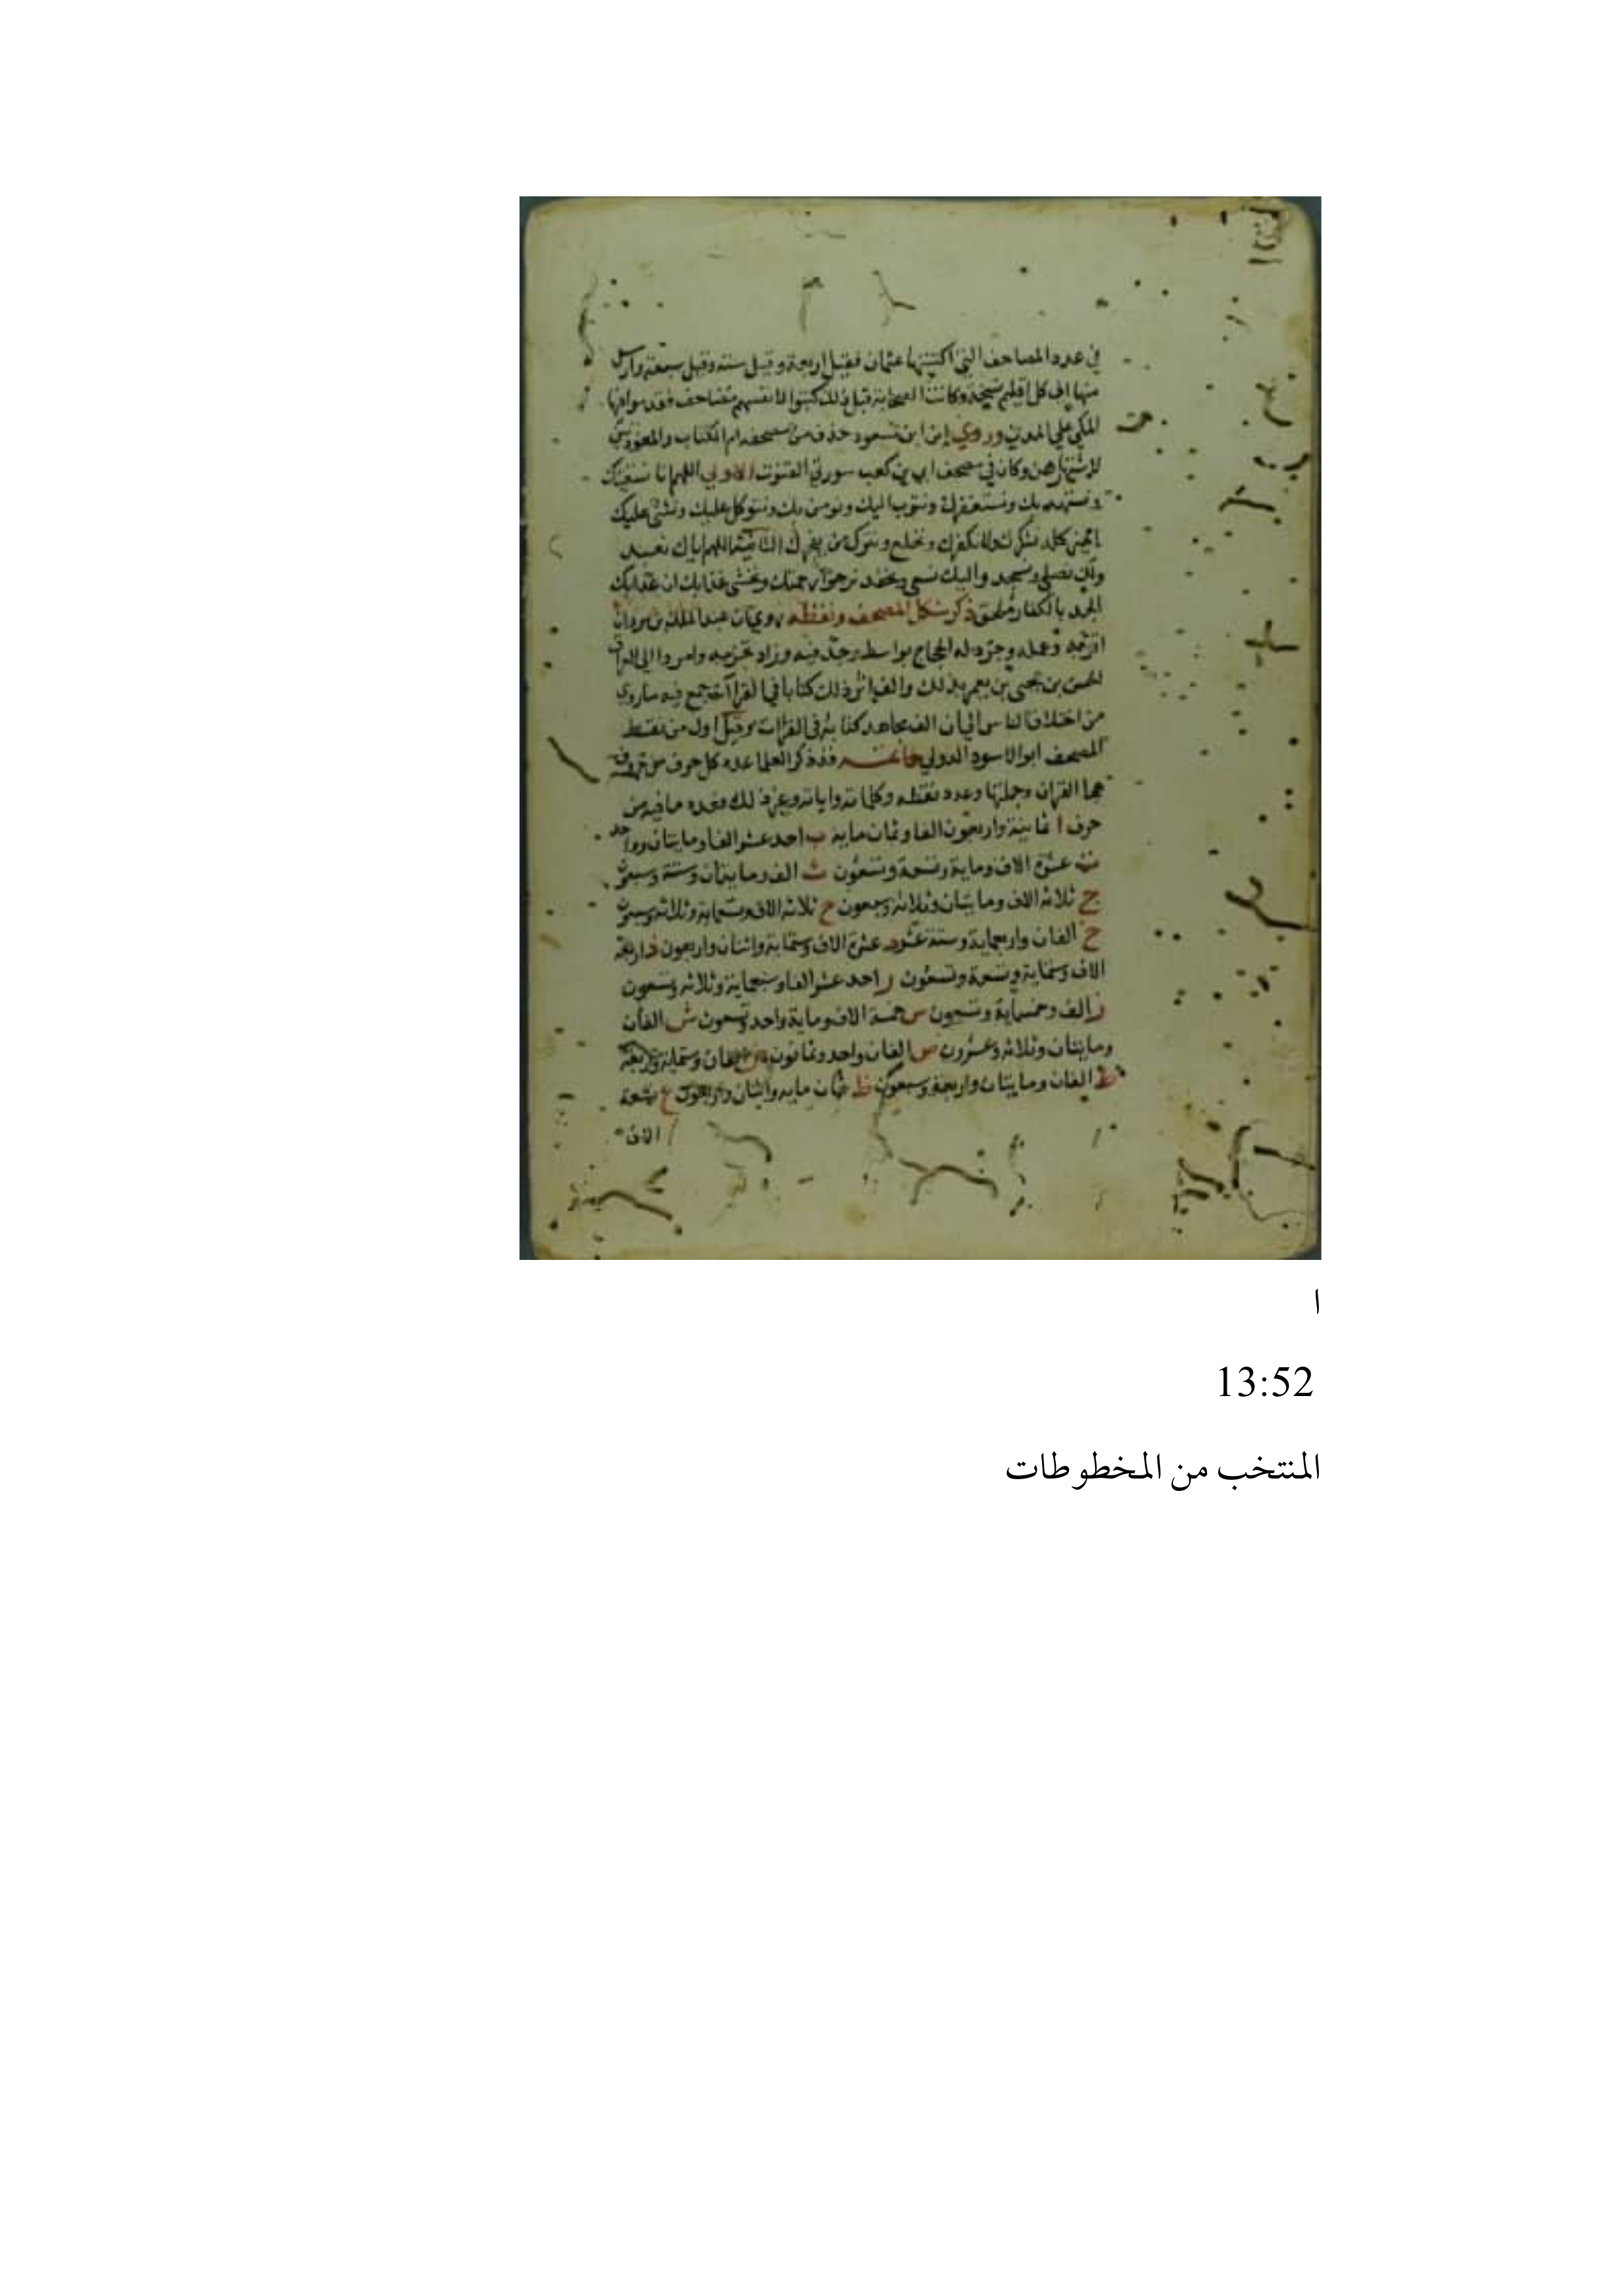 في عدد المصاحف التي اكتتبها عثمان فقيل اربعة وقيل ستة وقيل سبعة وارسل
منها الى كل اقليم نسخة وكانت الصحابة قبل ذلك كتبوا لانفسهم مصاحف فقدموا فيها
المكي علي المدني وروي ان ابن مسعود حذف من مصحفه ام الكتاب والمعوذتين
لاشتهارهن وكان في مصحف ابي بن كعب سورتي القنوت الاولي اللهم انا نستعينك
ونستهديك ونستغفرك ونتوب اليك ونومن بك ونتوكل عليك ونثني عليك
الخير كله نشكرك ولا نكفرك ونخلع ونترك من يفجرك الثانية اللهم اياك نعبد
ولك نصلي ونسجد واليك نسعى ونحفد نرجوا رحمتك ونخشى عذابك ان عذابك
الجد بالكفار ملحق ذكر شكل المصحف ونقطه روي ان عبد الملك بن مروان
امر به وعمله وجرد له الحجاج بواسط وجد فيه وزاد تحزيبه وامر والي العراق
الحسن بن يحيى بن يعمر بذلك والف اثر ذلك كتابا في القراآت جمع فيه ما روي
من اختلاف الناس الي ان الف مجاهد كتابه في القراات وقيل اول من نقط
المصحف ابو الاسود الدولي خاتمه قد ذكر العلما عده كل حرف من حروف
هجا القران وجملتها وعدد نقطه وكلماته واياته وغير ذلك فعده ما فيه من
حرف ا ثمانية واربعون الفا وثمان ماية ب احد عشر الفا ومايتان وواحد
ت عشرة الاف وماية وتسعة وتسعون ث الف ومايتان وستة وسبعون
ج ثلاثة الاف ومايتان وثلاثة وسبعون ح ثلاثة الاف وتسعماية وثلاثة وسبعون
خ الفان واربعماية وستة عشر د عشرة الاف وستماية واثنان واربعون ذ اربعة
الاف وستماية وتسعة وتسعون ر احد عشر الفا وسبعماية وثلاثه وتسعون
ز الف وخمسماية وتسعون س خمسة الاف وماية واحد وتسعون ش الفان
ومايتان وثلاثه وعشرون ص الفان واحد وثمانون ض الفان وستماية واربعة
ط الفان ومايتان واربعة وسبعون ظ ثمان مايه واثنان واربعون ع تسعة
الاف
ا
13:52
المنتخب من المخطوطات